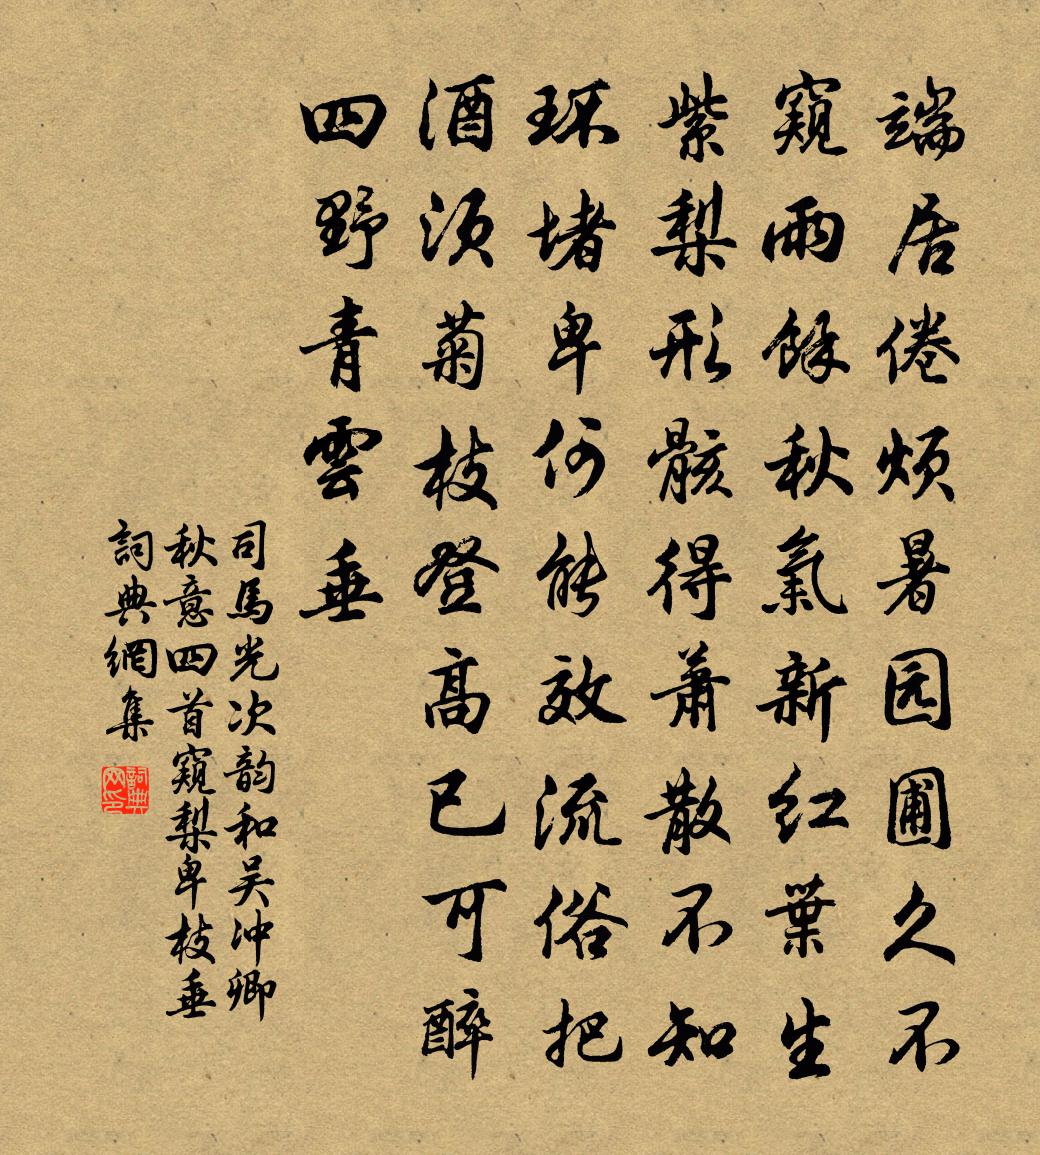 端居倦烦暑园圃久不
窺雨餘秋氣新红葉生
紫梨形骸得萧散不知
环堵卑何能效流俗把
酒须菊枝登高已可醉
四野青雲垂
司馬光次韵和吴冲卿
秋意四首窺梨卑枝垂
詞典網集
詞典網印